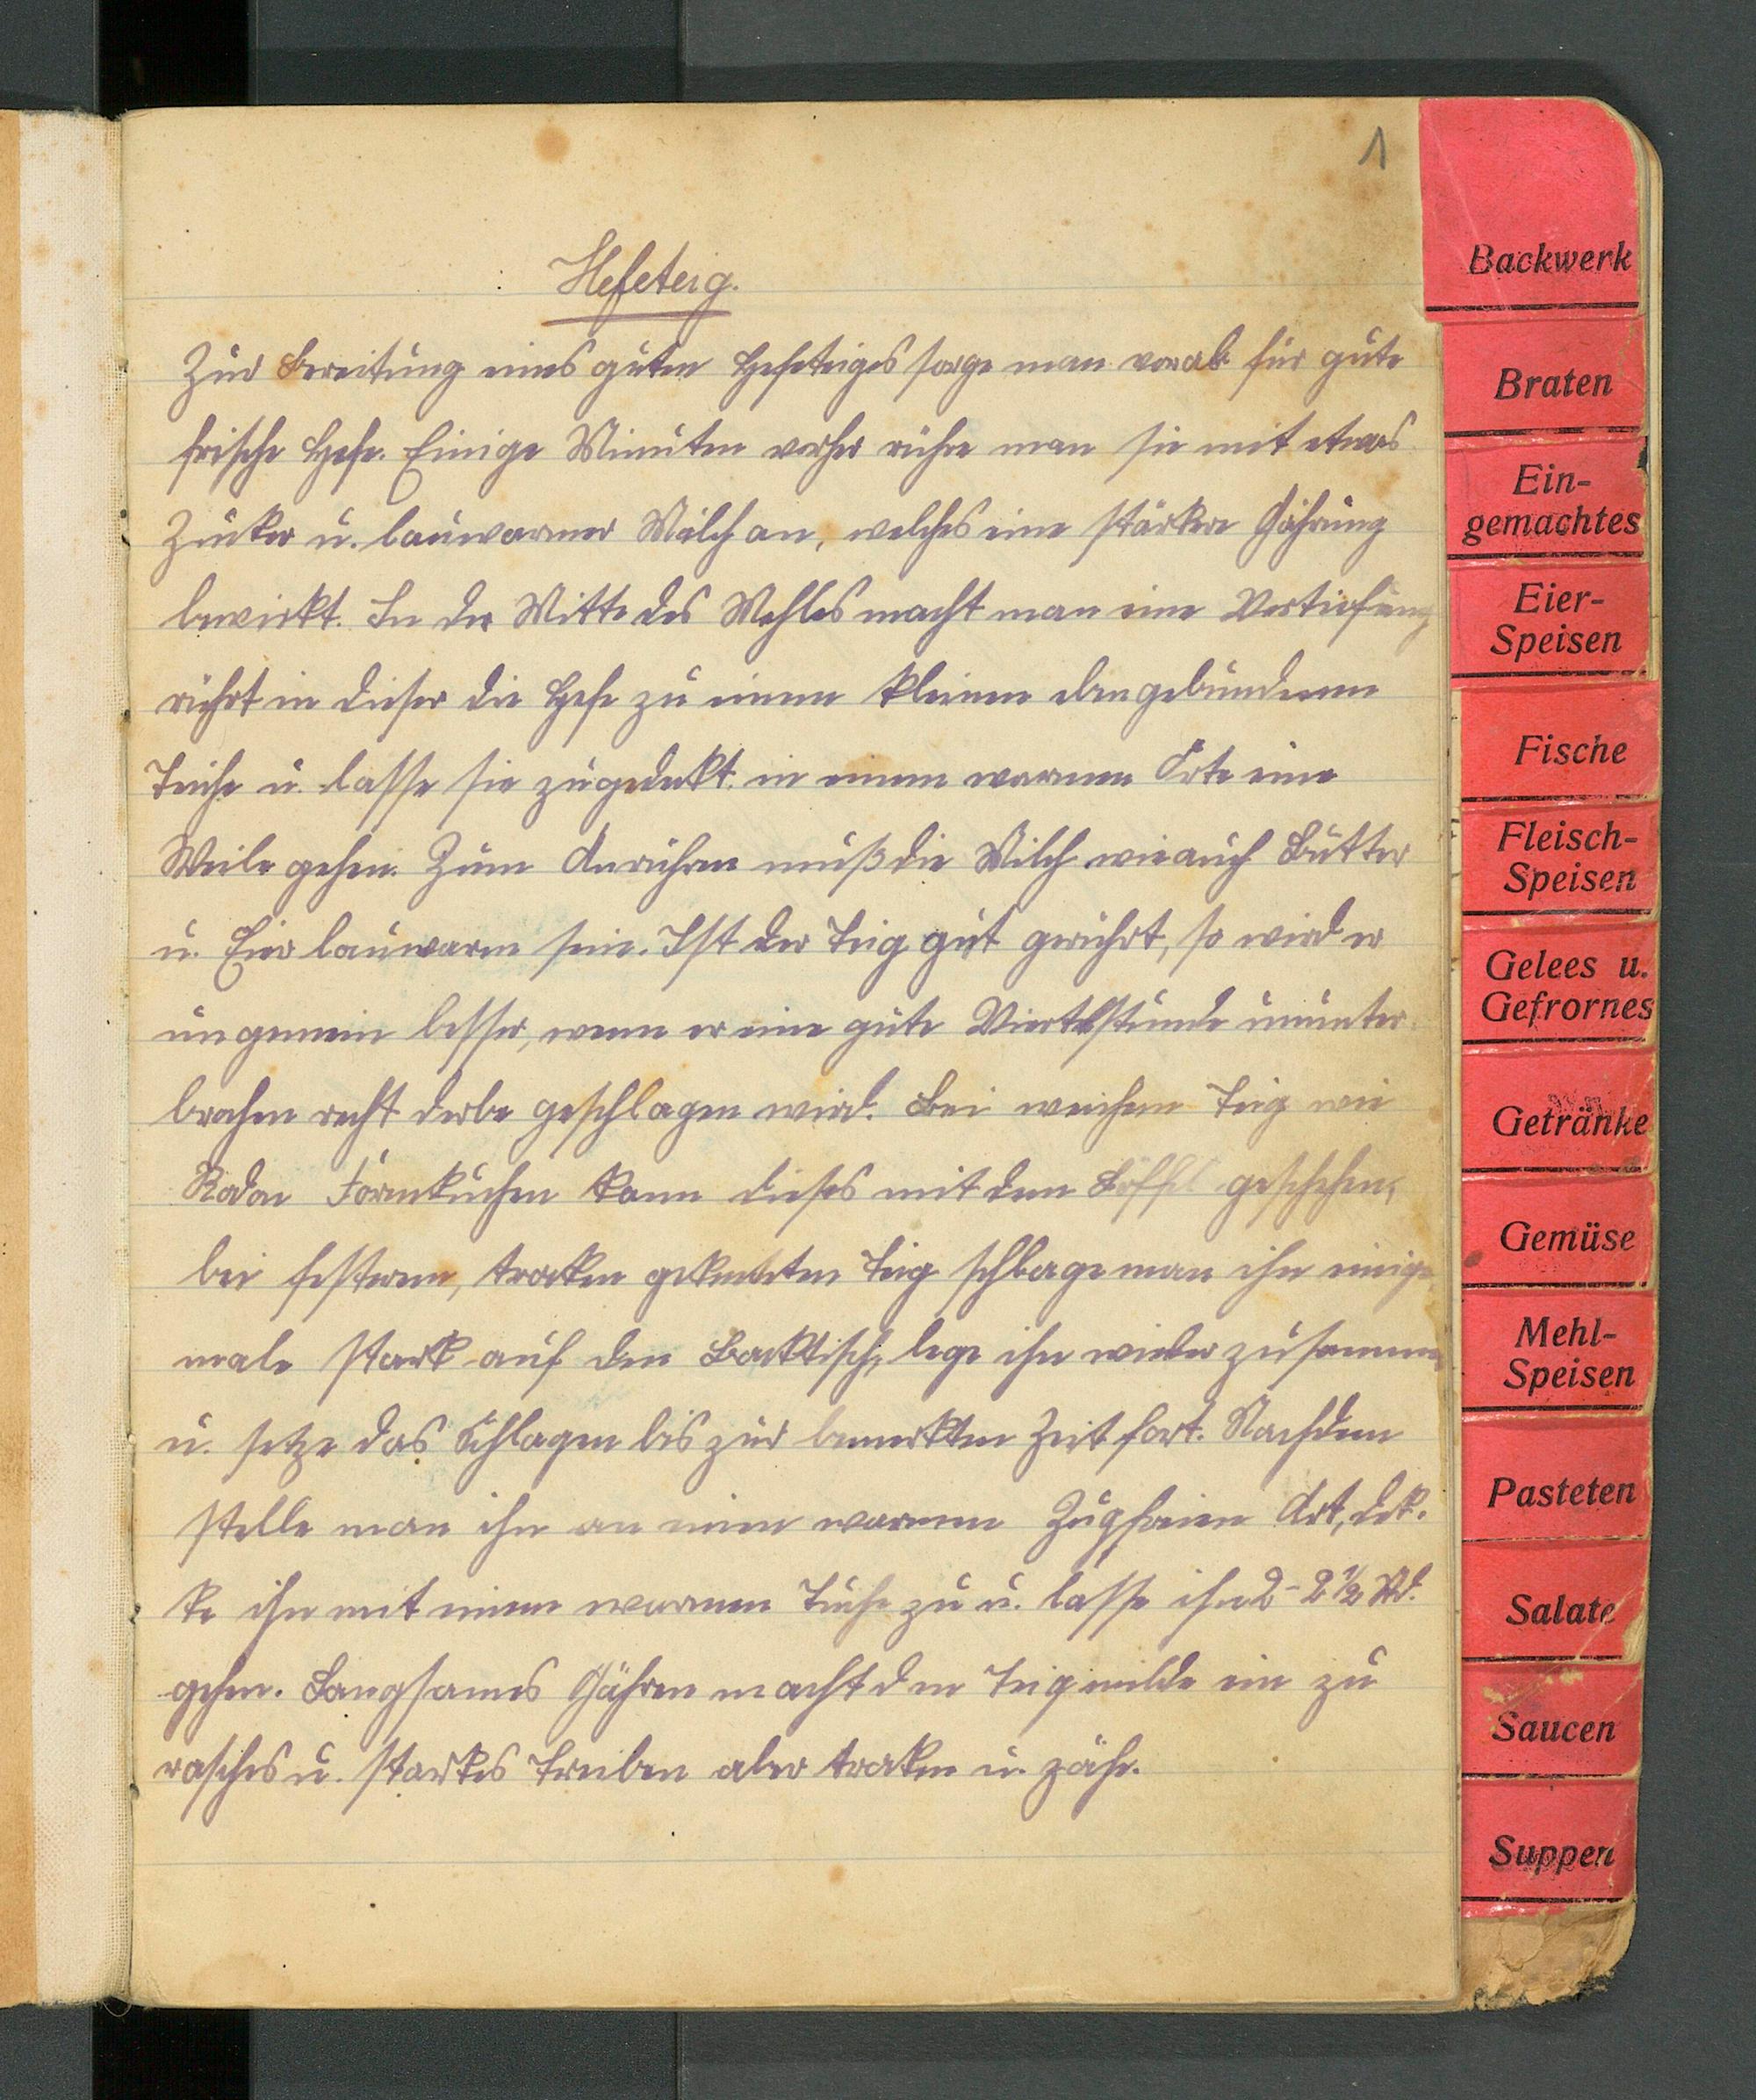 1
Hefeteig.
Zur Bereitung eines guten Hefeteiges sorge man vorab für gute
frische Hefe. Einige Minuten vorher rühre man sie mit etwas
Zucker u. lauwarmer Milch an, welches eine stärkere Gährung
bewirkt. In der Mitte des Mehles macht man eine Vertiefung
rührt in dieser die Hefe zu einem kleinen eben gebundenen
Teiche u. lasse sie zugedeckt in einem warmen Orte eine
Weile gehen. Zum Anrühren muß die Milch wie auch Butter
u. Eier lauwarm sein. Ist der Teig gut gerührt, so wird er
ungemein besser, wenn er eine gute Viertelstunde ununter
brochen recht derbe geschlagen wird. Bei weichem Teig wie
Rodon Formkuchen kann dieses mit dem Löffel geschehen,
bei festerem, trocken gekneteten Teig schlage man ihn einige
male stark auf den Backtisch, lege ihn wieder zusammen
u. setze das Schlagen bis zur bemerkten Zeit fort. Nachdem
stelle man ihn an einen warmen Zugfreien Ort, dek.
ke ihn mit einem warmen Tuche zu u. lasse ihn 2-2 1/2 Std.
gehen. Langsames Gähren macht den Teig milde ein zu
rasches u. starkes Treiben aber trocken u. zähe.
Backwerk
Braten
Ein-
gemachtes
Eier-
Speisen
Fische
Fleisch-
Speisen
Gelees u.
Gefrornes
Getränke
Gemüse
Mehl-
Speisen
Pasteten
Salate
Saucen
Suppen